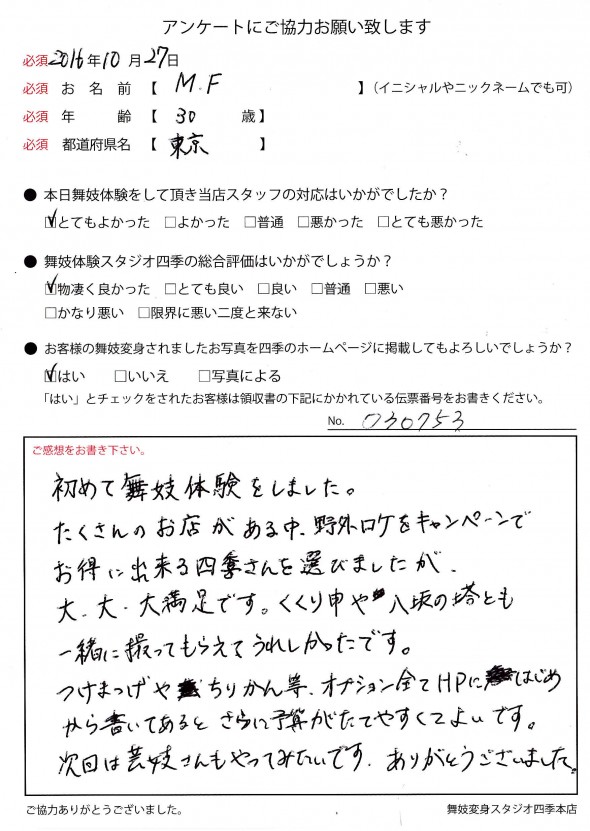 アンケートにご協力お願い致します
必須 2016年10月27日
必須 お名前 【 M.F 】（イニシャルやニックネームでも可）
必須 年齢 【 30 歳】
必須 都道府県名 【 東京 】
● 本日舞妓体験をして頂き当店スタッフの対応はいかがでしたか？
☑とてもよかった □よかった □普通 □悪かった □とても悪かった
● 舞妓体験スタジオ四季の総合評価はいかがでしょうか？
☑物凄く良かった □とても良い □良い □普通 □悪い
□かなり悪い □限界に悪い二度と来ない
● お客様の舞妓変身されましたお写真を四季のホームページに掲載してもよろしいでしょうか？
☑はい □いいえ □写真による
「はい」とチェックをされたお客様は領収書の下記にかかれている伝票番号をお書きください。
No. 030753
ご感想をお書き下さい。
初めて舞妓体験をしました。
たくさんのお店がある中、野外ロケをキャンペーンで
お得に出来る四季さんを選びましたが、
大、大、大満足です。くくり申や八坂の塔とも
一緒に撮ってもらえてうれしかったです。
つけまつげやちりかん等、オプション全てHPにはじめ
から書いてあるとさらに予算がたてやすくてよいです。
次回は芸妓さんもやってみたいです。ありがとうございました。
ご協力ありがとうございました。
舞妓変身スタジオ四季本店